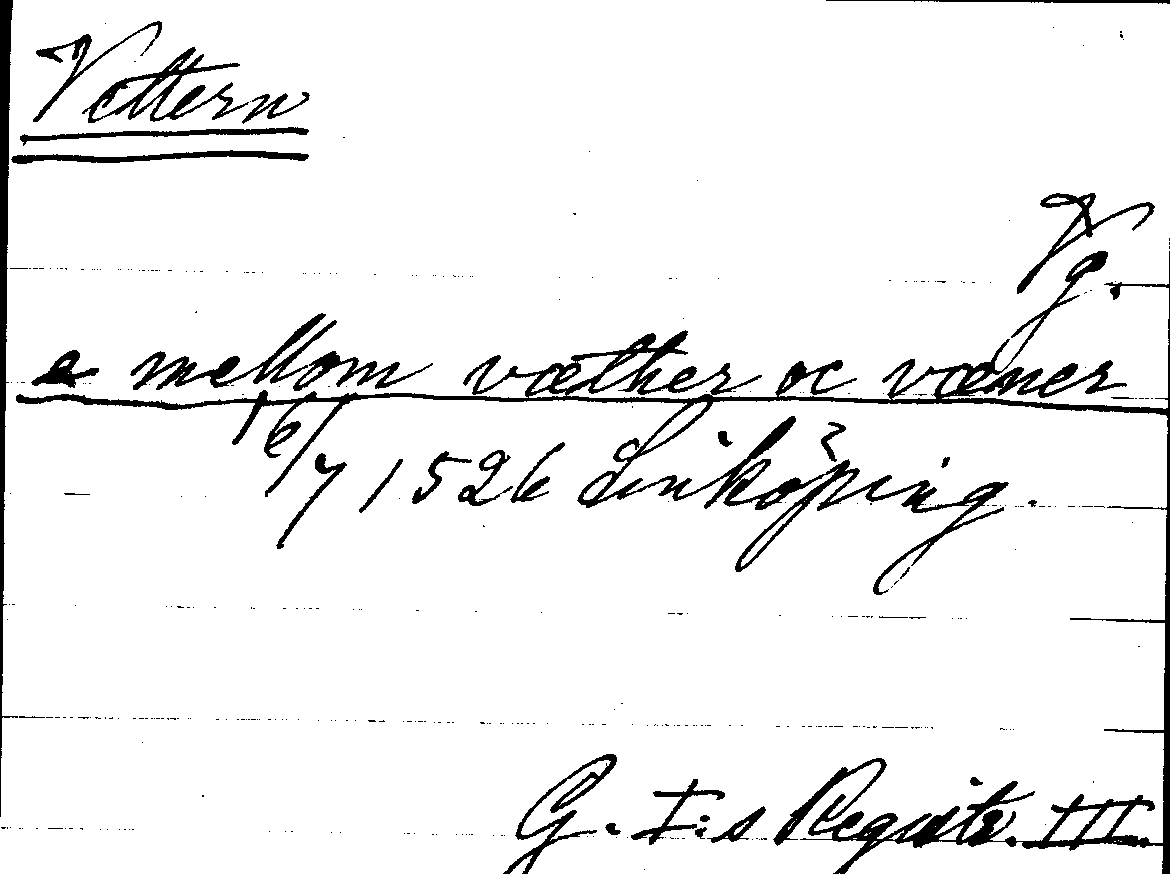 Vettern
Vg.
e mellom væther oc væner
16/7 1526 Linköping.
G. I:s Registr. III.